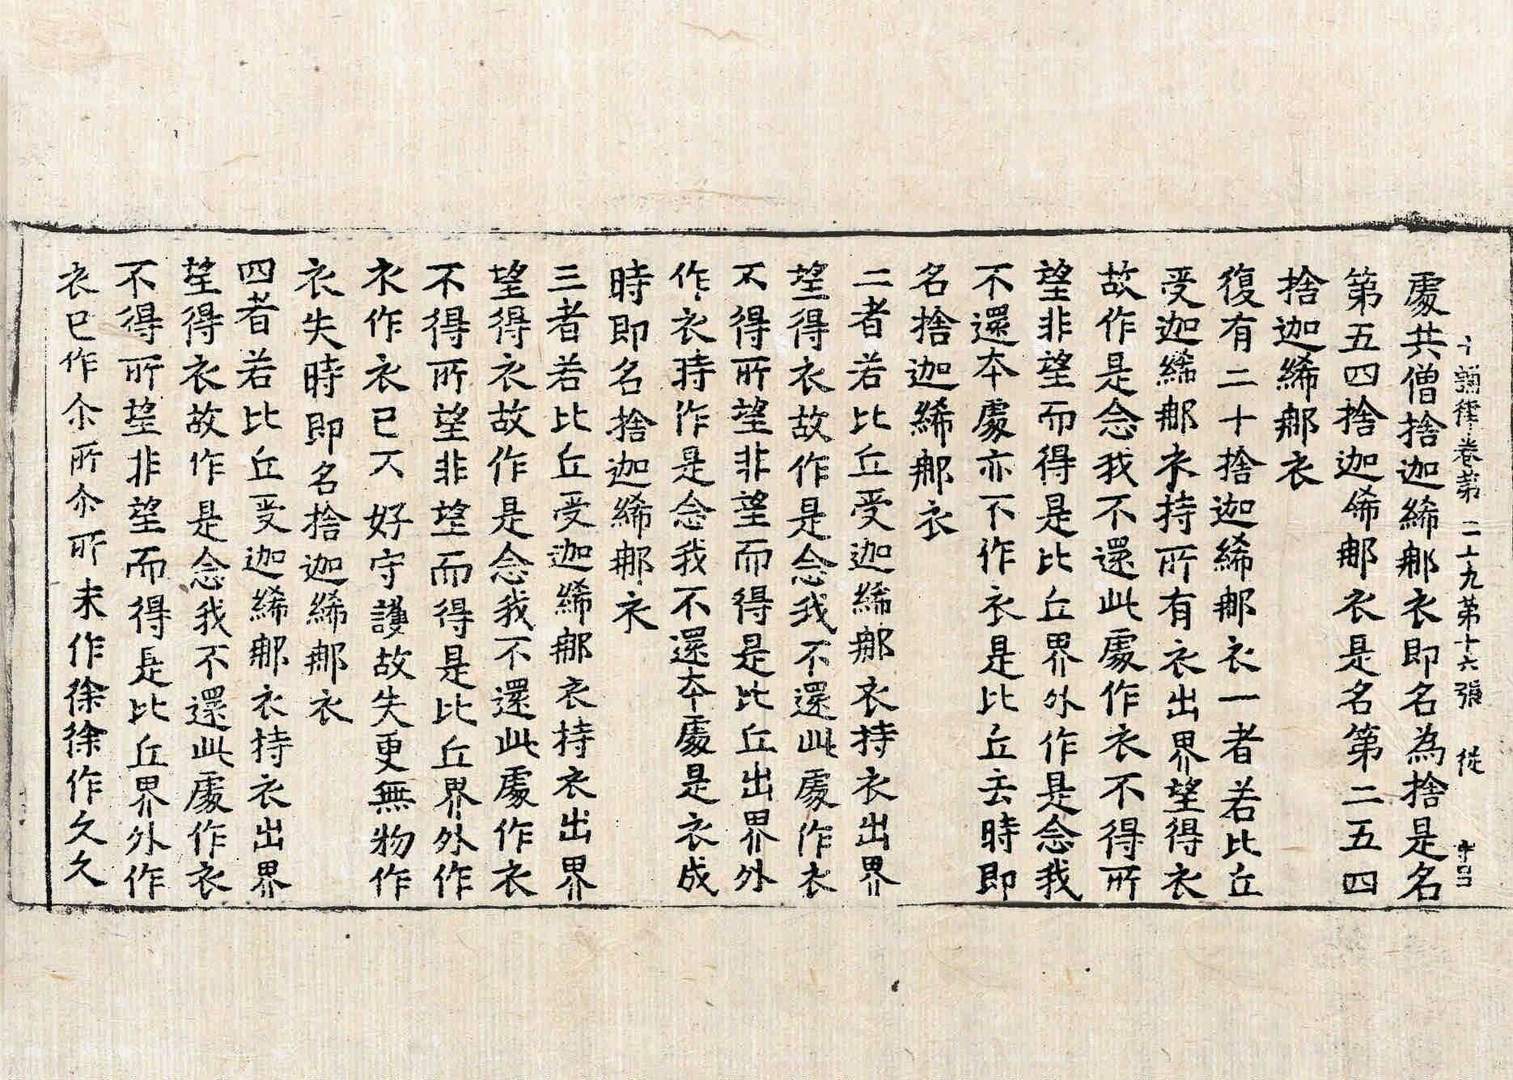 十誦律卷第二十九第十六張 従
處共僧捨迦絺那衣即名為捨是名
第五四捨迦絺那衣是名第二五四
捨迦絺那衣
復有二十捨迦絺那衣一者若比丘
受迦絺那衣持所有衣出界望得衣
故作是念我不還此處作衣不得所
望非望而得是比丘界外作是念我
不還本處亦不作衣是比丘去時即
名捨迦絺那衣
二者若比丘受迦絺那衣持衣出界
望得衣故作是念我不還此處作衣
不得所望非望而得是比丘出界外
作衣時作是念我不還本處是衣成
時即名捨迦絺那衣
三者若比丘受迦絺那衣持衣出界
望得衣故作是念我不還此處作衣
不得所望非望而得是比丘界外作
衣作衣已不好守護故失更無物作
衣失時即名捨迦絺那衣
四者若比丘受迦絺那衣持衣出界
望得衣故作是念我不還此處作衣
不得所望非望而得是比丘界外作
衣已作尒所尒所未作徐徐作久久